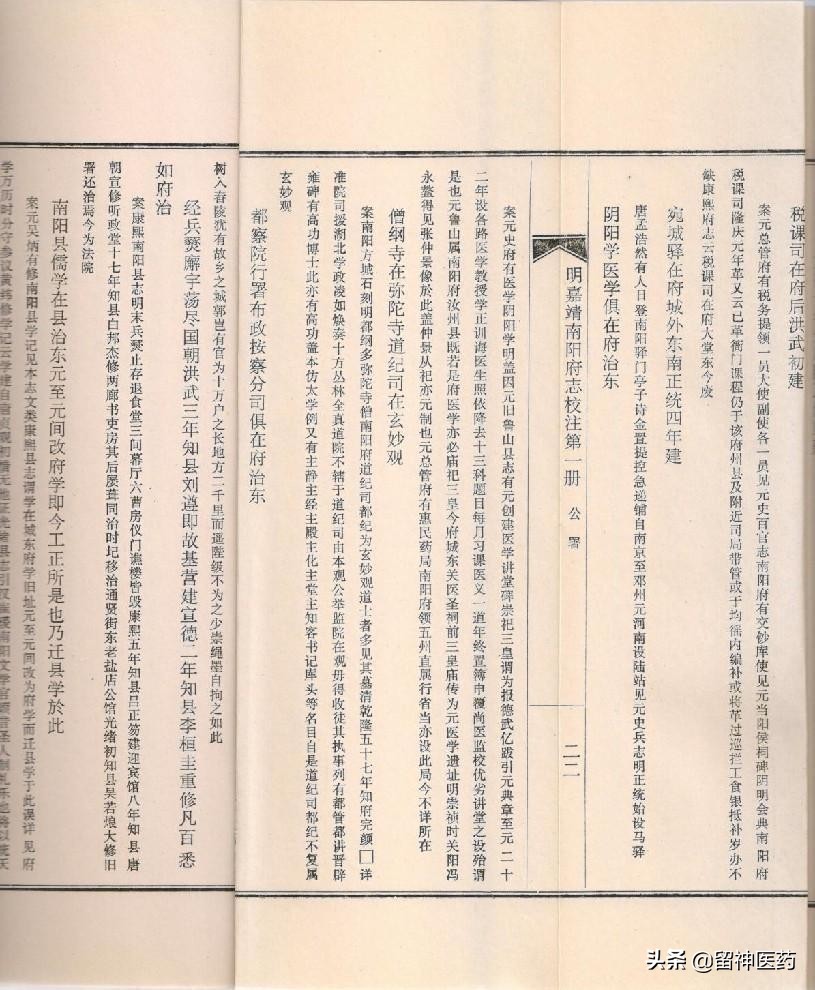 税课司在府后洪武初建
案元总管府有税务提领一员大使副使各一员见元史百官志南阳府有交钞库使见元当阳侯祠碑阴明会典南阳府
税课司隆庆元年革又云已革衙门课程仍于该府州县及附近司局带管或于均徭内编补或将革过巡拦工食银抵补岁办不
缺康熙府志云税课司在府大堂东今废
宛城驿在府城外东南正统四年建
唐孟浩然有人日登南阳驿门亭子诗金置提控急递铺自南京至邓州元河南设陆站见元史兵志明正统始设马驿
阴阳学医学俱在府治东
明嘉靖南阳府志校注第一册
公署
二二
案元史府有医学阴阳学明盖因元旧鲁山县志有元创建医学讲堂碑崇祀三皇谓为报德武亿跋引元典章至元二十
二年设各路医学教授学正训诲医生照依降去十三科题目每月习课医义一道年终置簿申覆尚医监校优劣讲堂之设殆谓
是也元鲁山属南阳府汝州县既若是府医学亦必庙祀三皇今府城东关医圣祠前三皇庙传为元医学遗址明崇祯时关阳冯
永鳌得见张仲景像於此盖仲景从祀亦元制也元总管府有惠民药局南阳府领五州直属行省当亦设此局今不详所在
僧纲寺在弥陀寺道纪司在玄妙观
案南阳方城石刻明都纲多弥陀寺僧南阳府道纪司都纪为玄妙观道士者多见其墓清乾隆五十七年知府完颜□详
准院司援湖北学政凌如焕奏十方丛林全真道院不辖于道纪司由本观公举监院在观毋得收徒其执事列有都管都讲晋辟
雍碑有高功博士此亦有高功盖本仿太学例又有主静主经主殿主化主堂主知客书记库头等名目自是道纪司都纪不复属
玄妙观
都察院行署布政按察分司俱在府治东
树入春陵犹有故乡之城郭岂有官为十万户之长地方二千里而遥陛级不为之少崇绳墨自拘之如此
经兵燹廨宇荡尽国朝洪武三年知县刘遵即故基营建宣德二年知县李桓圭重修凡百悉
如府治
案康熙南阳县志明末兵燹止存退食堂三间幕厅六曹房仪门谯楼皆毁康熙五年知县吕正笏建迎宾馆八年知县唐
朝宣修听政堂十七年知县白邦杰修两廊书吏房其后屡葺同治时圮移治通贤街东老盐店公馆光绪初知县吴若烺大修旧
署还治焉今为法院
南阳县儒学在县治东元至元间改府学即今工正所是也乃迁县学於此
案元吴炳有修南阳县学记见本志文类康熙县志谓学在城东府学旧址元至元间改为府学而迁县学于此误详见府
头条 @留神医药